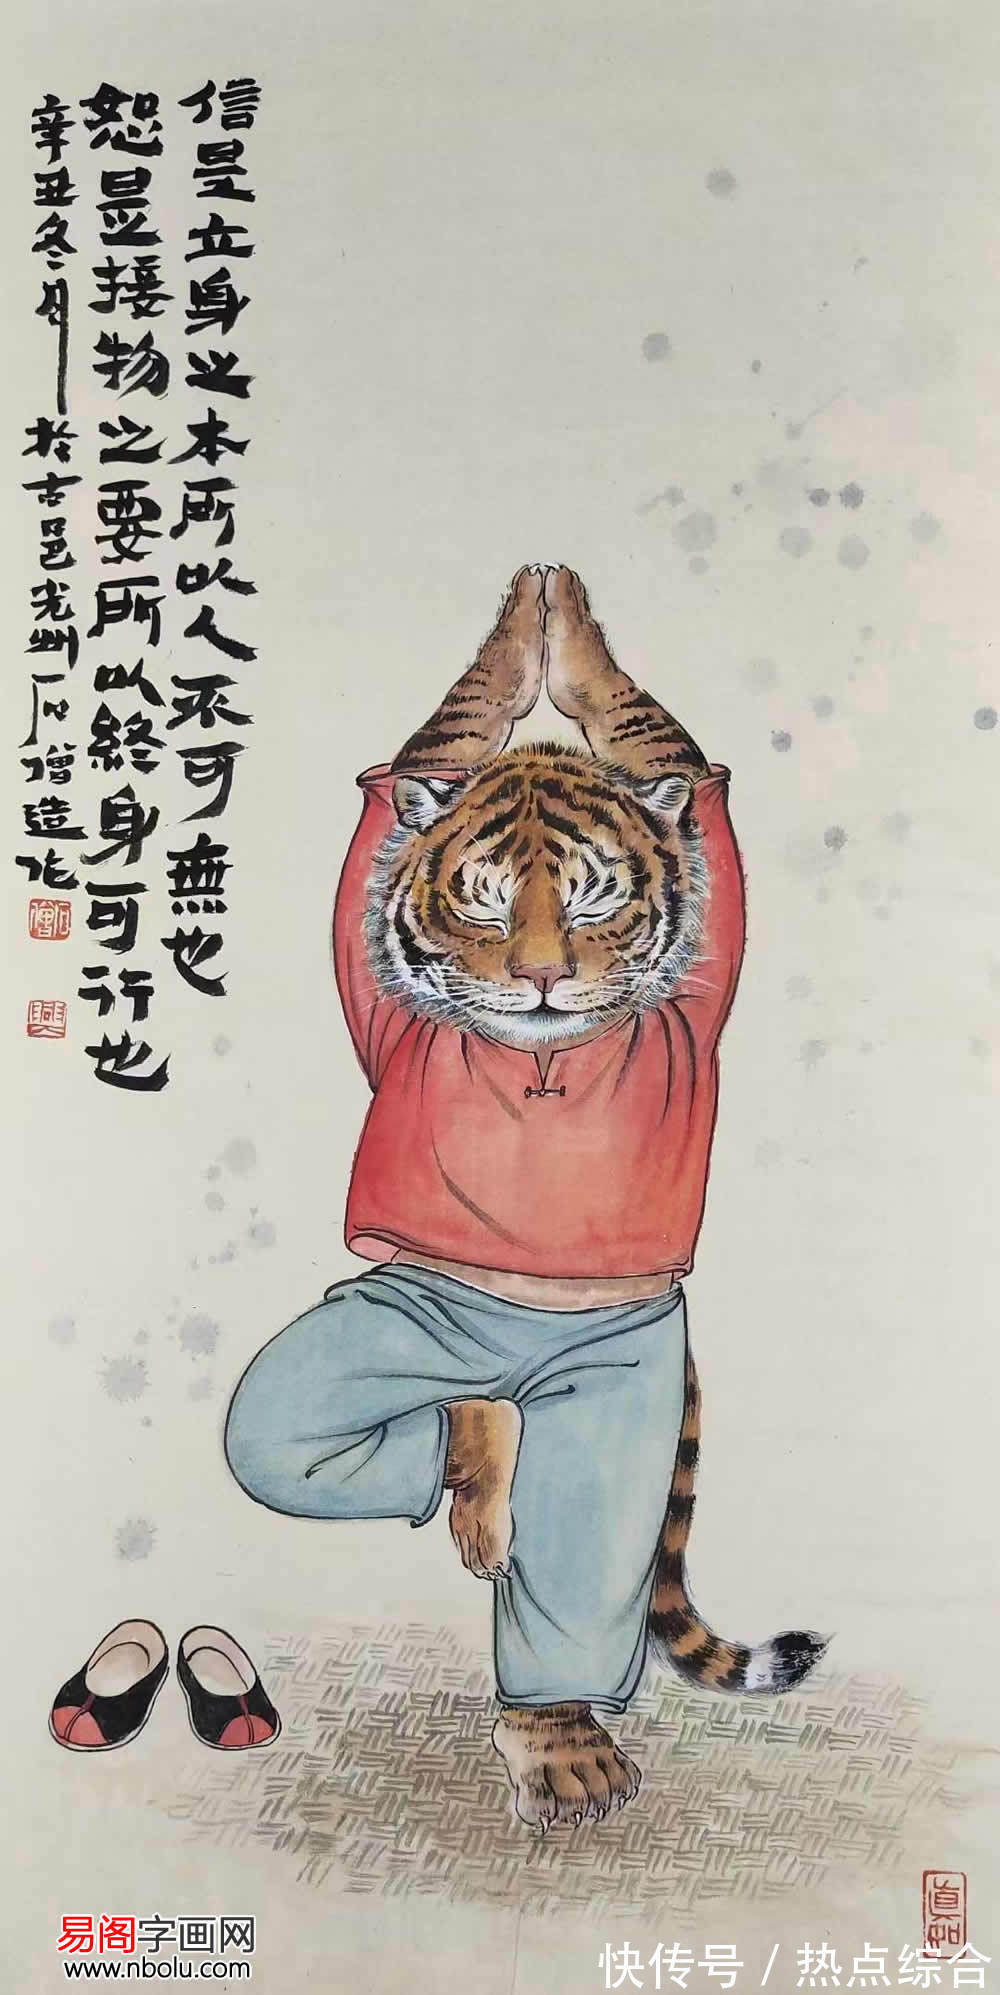 信是立身之本所以人不可無也
恕是接物之要所以終身可行也
辛丑冬月於古邑光州石僧造作
石僧
真如
易阁字画网
www.nbolu.com
快传号 / 热点综合